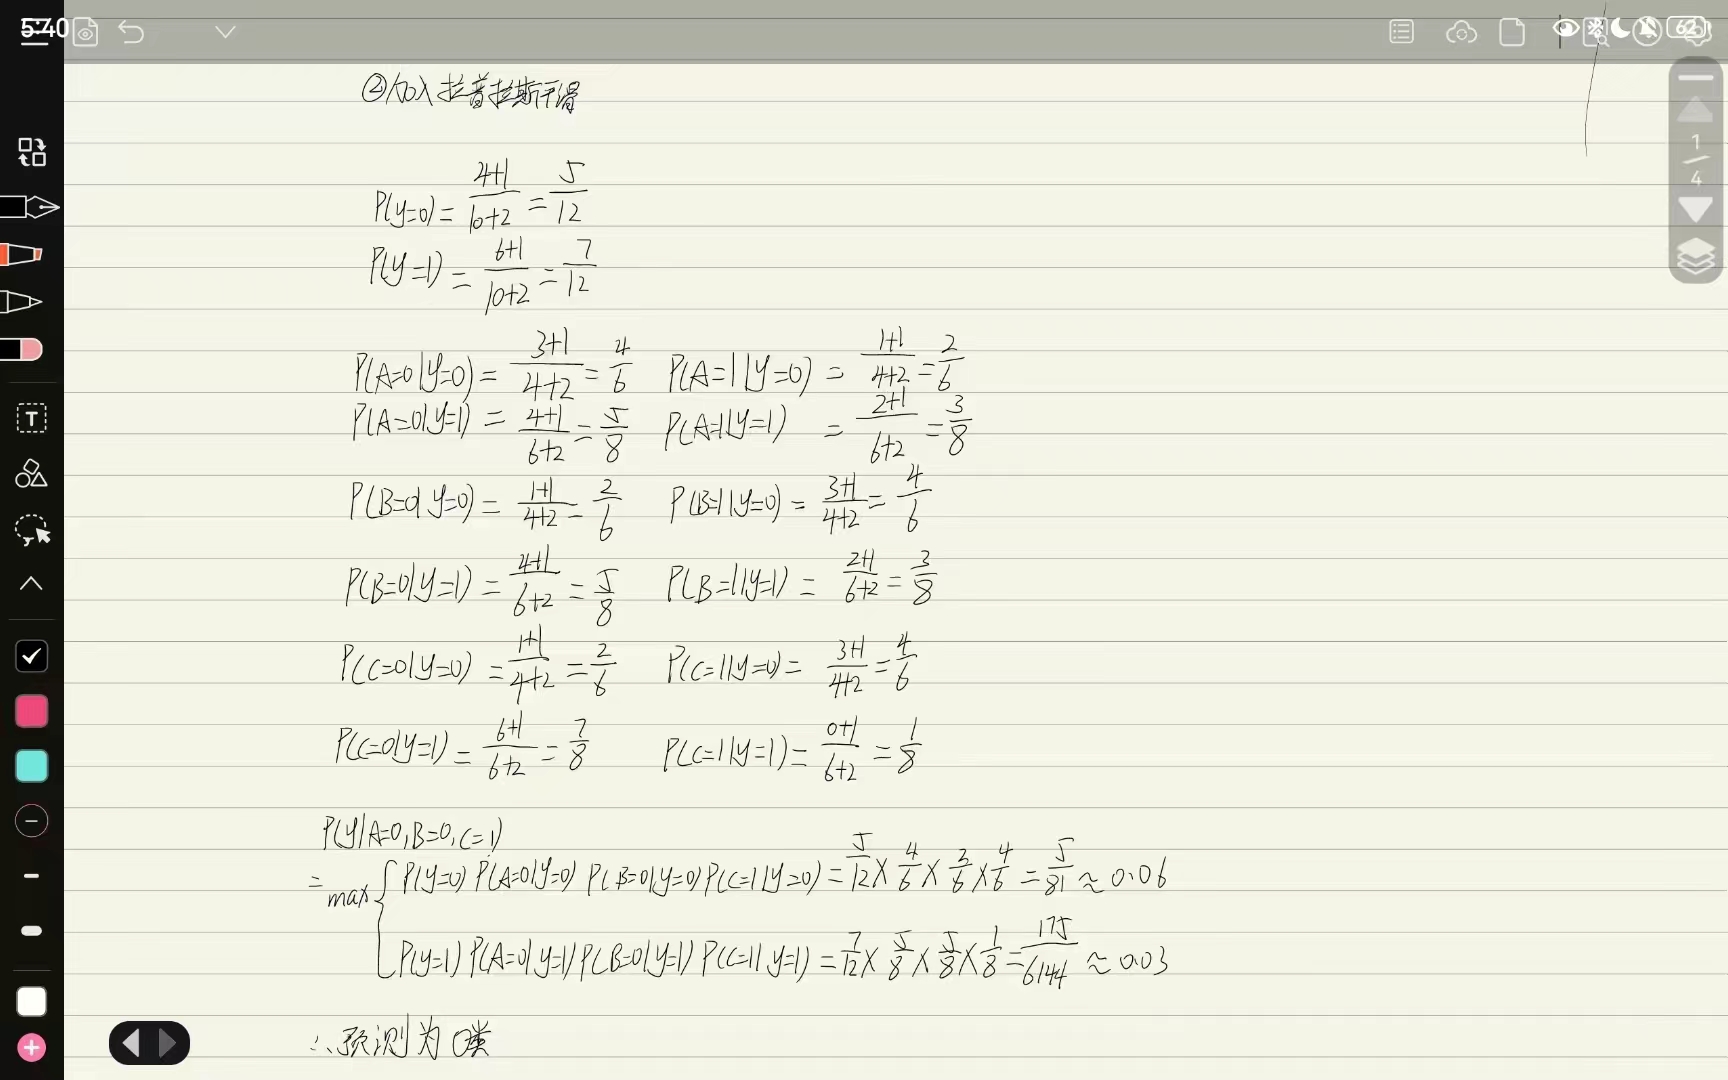 5:40
62
②加入拉普拉斯平滑
P(y=0) = 4+1/10+2 = 5/12
P(y=1) = 6+1/10+2 = 7/12
P(A=0|y=0) = 3+1/4+2 = 4/6 P(A=1|y=0) = 1+1/4+2 = 2/6
P(A=0|y=1) = 4+1/6+2 = 5/8 P(A=1|y=1) = 2+1/6+2 = 3/8
P(B=0|y=0) = 1+1/4+2 = 2/6 P(B=1|y=0) = 3+1/4+2 = 4/6
P(B=0|y=1) = 4+1/6+2 = 5/8 P(B=1|y=1) = 2+1/6+2 = 3/8
P(C=0|y=0) = 1+1/4+2 = 2/6 P(C=1|y=0) = 3+1/4+2 = 4/6
P(C=0|y=1) = 6+1/6+2 = 7/8 P(C=1|y=1) = 0+1/6+2 = 1/8
P(y|A=0,B=0,C=1)
= max { P(y=0) P(A=0|y=0) P(B=0|y=0) P(C=1|y=0) = 5/12 × 4/6 × 2/6 × 4/6 = 5/81 ≈ 0.06
P(y=1) P(A=0|y=1) P(B=0|y=1) P(C=1|y=1) = 7/12 × 5/8 × 5/8 × 1/8 = 175/6144 ≈ 0.03
∴预测为0类
1/4
T